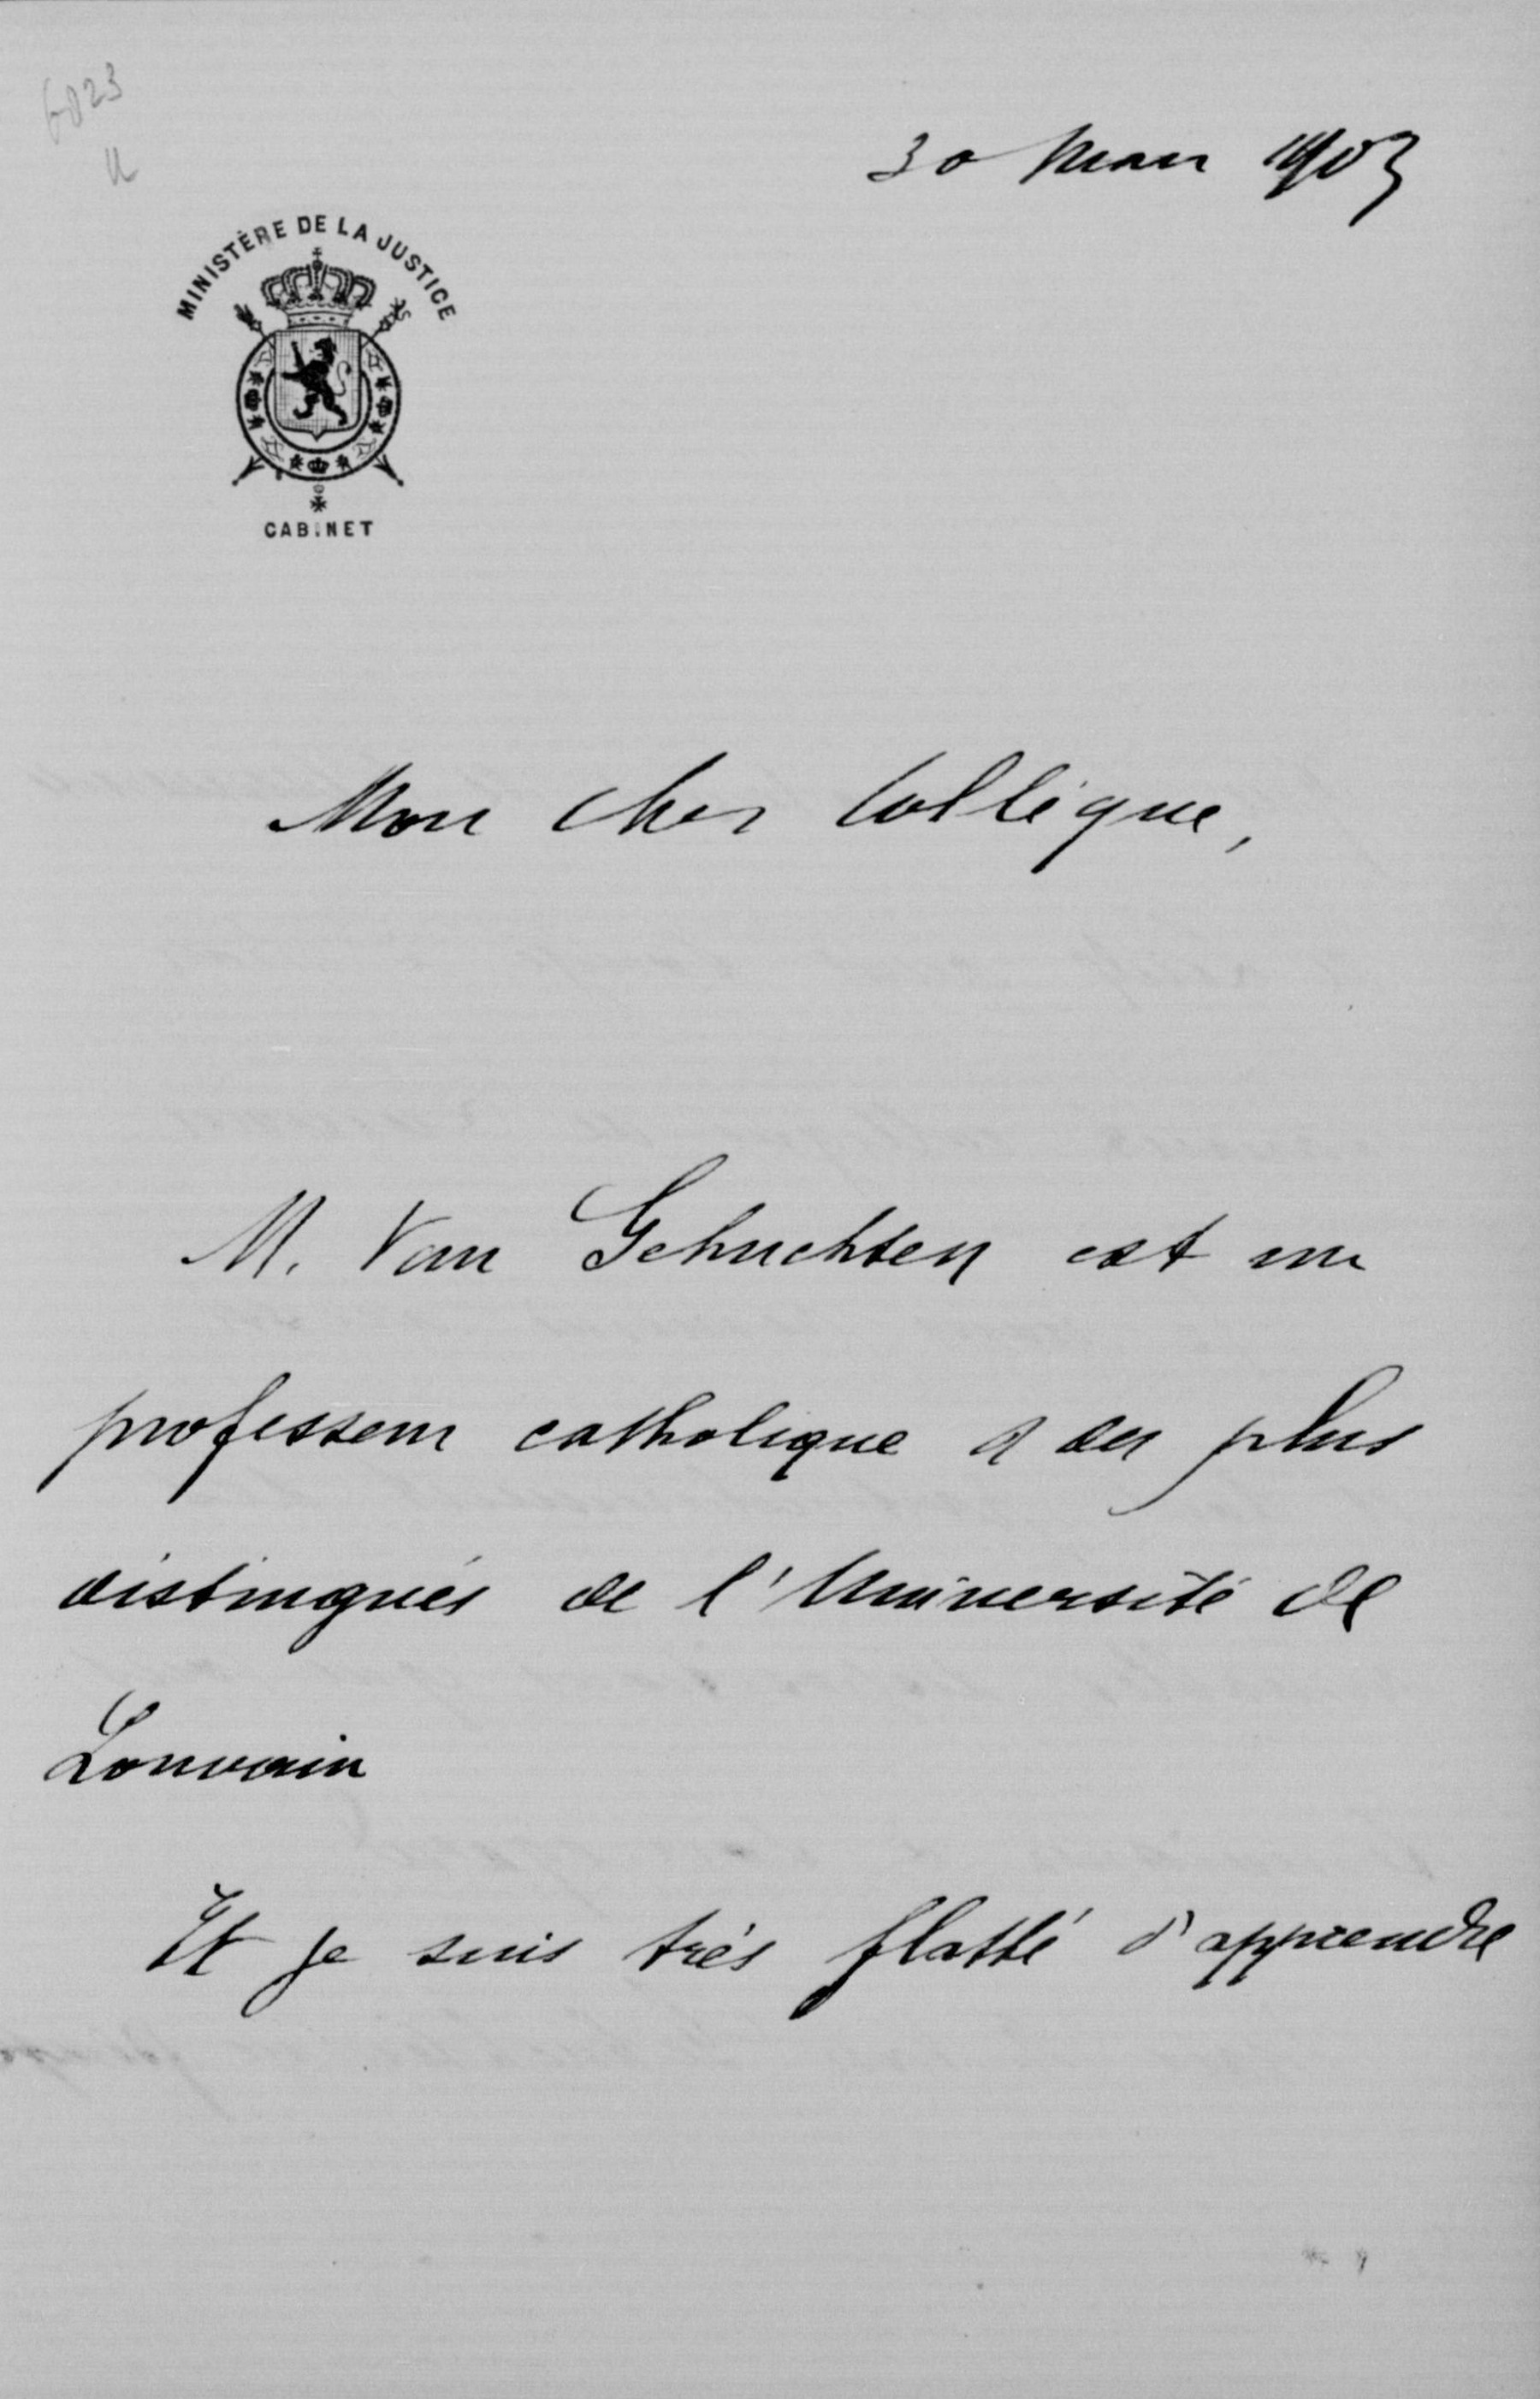 6023
30 Mars 1903
MINISTÈRE DE LA JUSTICE
CABINET
Mon cher Collègue,
M. Van Gehuchten est un
professeur catholique & des plus
distingués de l'Université de
Louvain
Et je suis très flatté d'apprendre